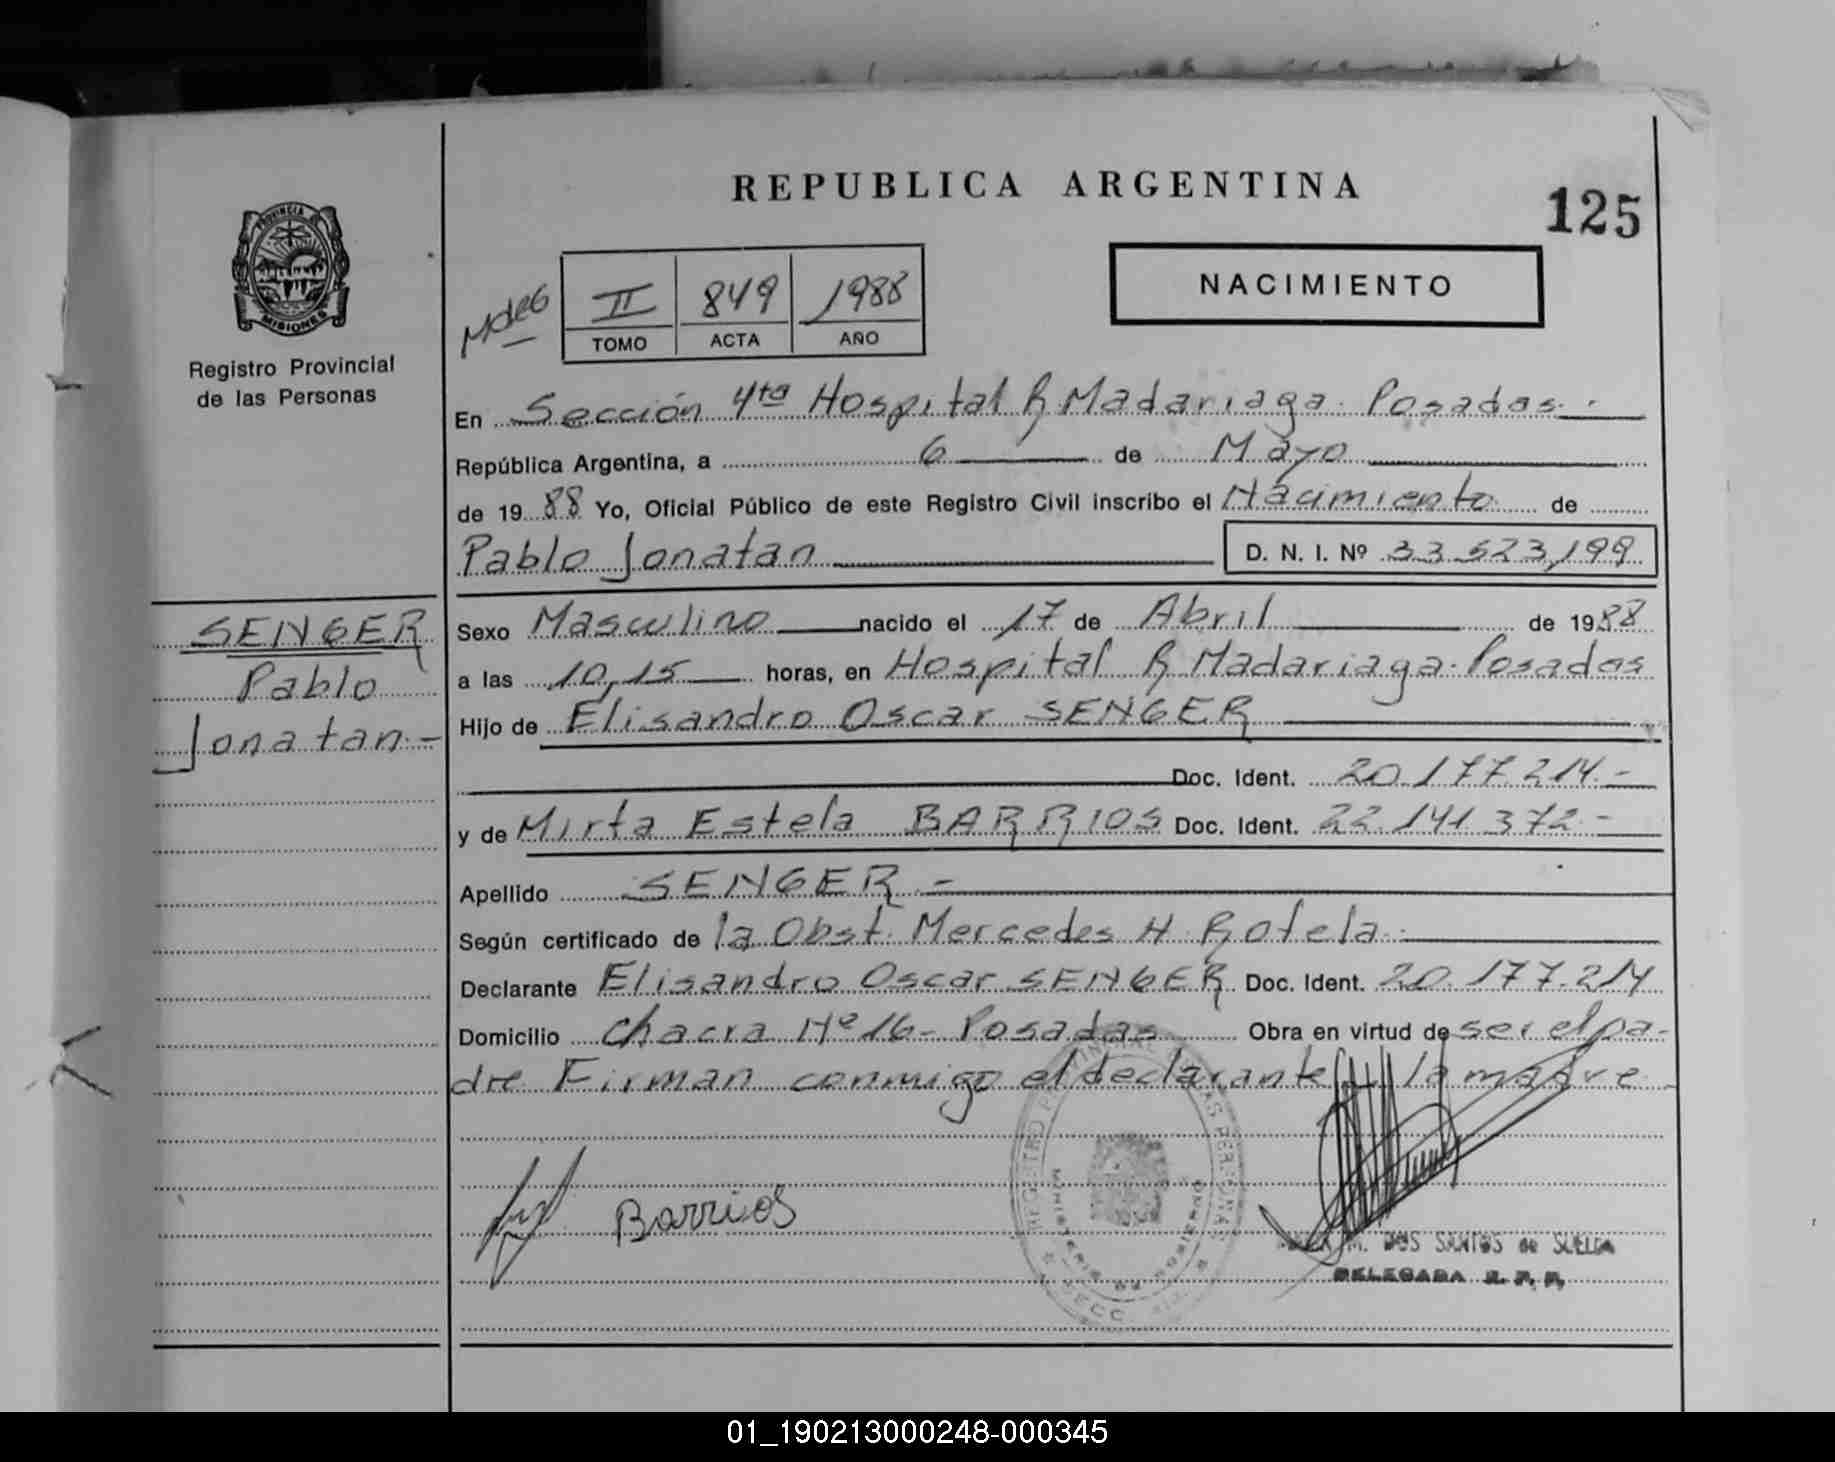 REPUBLICA ARGENTINA
125
NACIMIENTO
PROVINCIA DE
MISIONES
Registro Provincial
de las Personas
II 849 1988
TOMO ACTA AÑO
En Sección 4ta Hospital R Madariaga. Posadas.-
República Argentina, a 6 de Mayo
de 1988 Yo, Oficial Público de este Registro Civil inscribo el Nacimiento de
Pablo Jonatan D. N. I. Nº 33.523,199
SENGER
Pablo
Jonatan.-
Sexo Masculino nacido el 17 de Abril de 1988
a las 10,15 horas, en Hospital R Madariaga. Posadas
Hijo de Elisandro Oscar SENGER
Doc. Ident. 20.177.214.-
y de Mirta Estela BARRIOS Doc. Ident. 22.141.372.-
Apellido SENGER.-
Según certificado de la Obst. Mercedes H. Rotela.
Declarante Elisandro Oscar SENGER Doc. Ident. 20.177.214
Domicilio Chacra Nº 16- Posadas Obra en virtud de ser el pa-
dre Firman conmigo el declarante y la madre
Barrios
M. DOS SANTOS de SUELDA
DELEGADA R. P. P.
01_190213000248-000345